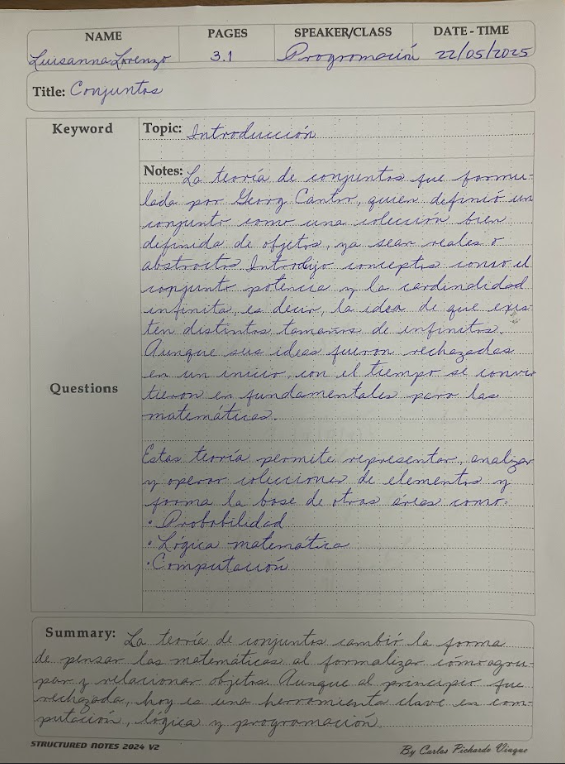 NAME PAGES SPEAKER/CLASS DATE - TIME
Luisanna Lorenzo 3.1 Programación 22/05/2025
Title: Conjuntos
Keyword
Topic: Introducción
Notes: La teoría de conjuntos fue formu-
lada por Georg Cantor, quien definió un
conjunto como una colección bien
definida de objetos, ya sean reales o
abstractos. Introdujo conceptos como el
conjunto potencia y la cardinalidad
infinita, es decir, la idea de que exis-
ten distintos tamaños de infinitos.
Aunque sus ideas fueron rechazadas
en un inicio, con el tiempo se convir
Questions
tieron en fundamentales para las
matemáticas.
Estas teoría permite representar, analizar
y operar colecciones de elementos y
forma la base de otras áreas como:
• Probabilidad
• Lógica matemática
• Computación
Summary: La teoría de conjuntos cambió la forma
de pensar las matemáticas al formalizar cómo agru-
par y relacionar objetos. Aunque al principio fue
rechazada, hoy es una herramienta clave en com-
putación, lógica y programación.
STRUCTURED NOTES 2024 V2 By Carlos Pichardo Vinque